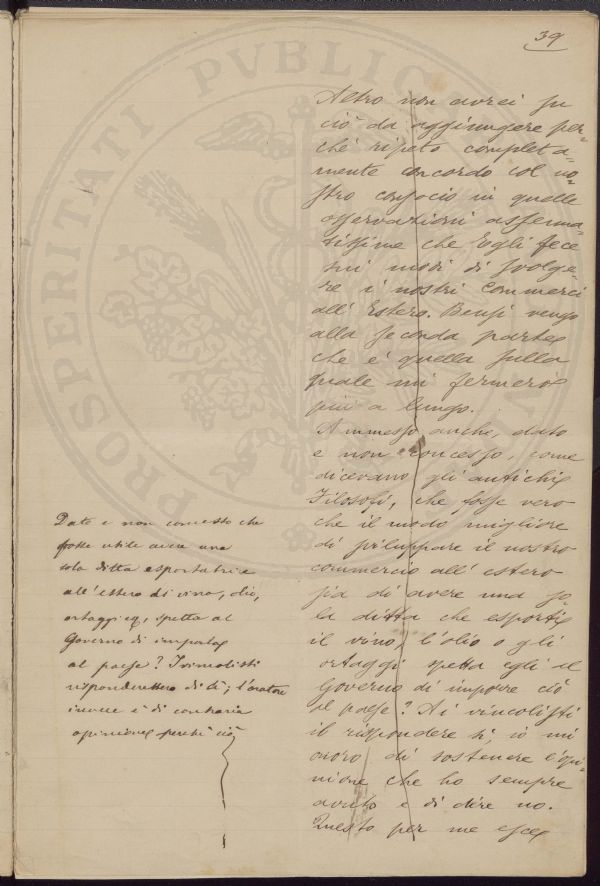 39
Altro non avrei su
ciò da aggiungere per-
chè ripeto completa-
mente concordo col no-
stro consocio in quelle
osservazioni assenna-
tissime che Egli fece
sui modi di svolge
re i nostri Commerci
all' Estero. Bensì vengo
alla seconda parte
che è quella sulla
quale mi fermerò
più a lungo.
Ammesso anche, dato
e non concesso, come
dicevano gli antichi
Filosofi, che fosse vero
che il modo migliore
di sviluppare il nostro
commercio all' estero
sia di avere una so
la ditta che esporti
il vino, l'olio o gli
ortaggi spetta egli al
Governo di imporre ciò
al paese? Ai vincolisti
il rispondere sì io mi
onoro di sostenere l'opi-
nione che ho sempre
avuto e di dire no.
Questo per me esce
Dato e non concesso che
fosse utile avere una
sola ditta esportatrice
all'estero di vino, olio,
ortaggi eq, spetta al
Governo di imporlo
al paese? I vincolisti
risponderettero di sì; l'oratore
invece è di contraria
opinione perchè ciò
PROSPERITATI PVBLICAE